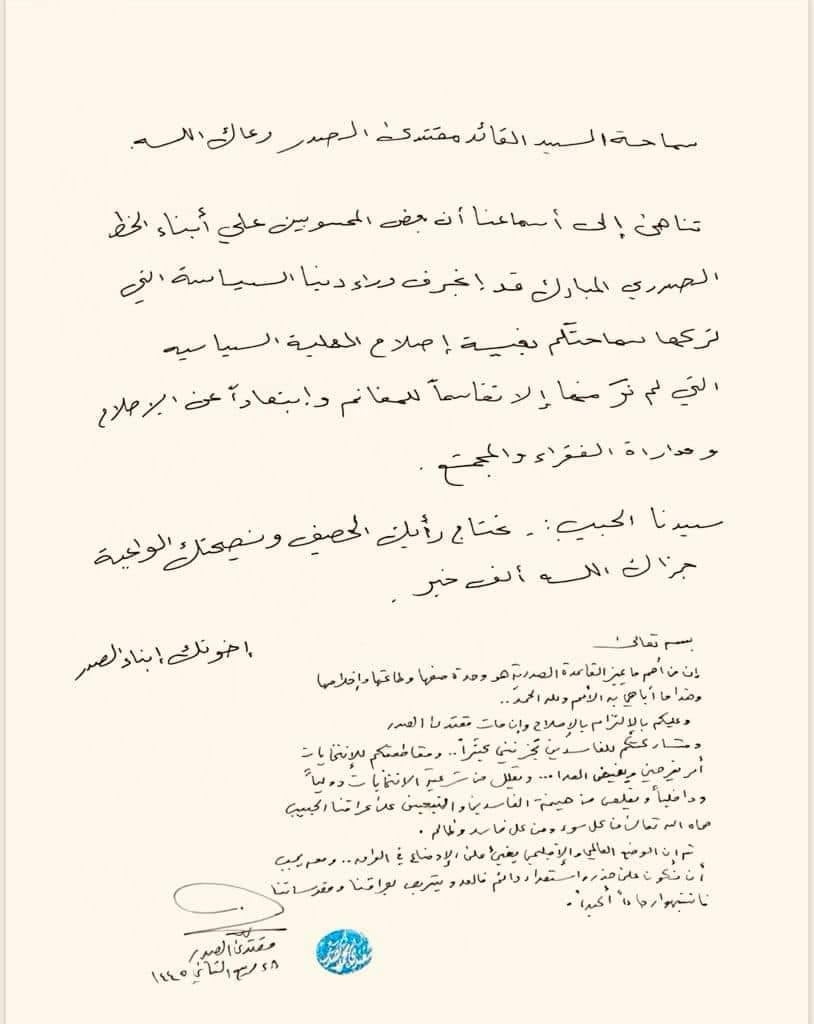 سماحة السيد القائد مقتدى الصدر رعاك الله.
تناهى إلى أسماعنا أن بعض المحسوبين علي أبناء الخط
الصدري المبارك قد إنجرف وراء دنيا السياسة التي
تركها سماحتكم بغية إصلاح العملية السياسيه
التي لم نرَ منها إلا تقاسماً للمغانم وإبتعاداً عن الإصلاح
ومداراة الفقراء والمجتمع .
سيدنا الحبيب :. نحتاج رأيك الحصيف ونصيحتك الواعية
جزاك الله ألف خير .
إخوتك إبناء الصدر
بسمه تعالى
إن من أهم ما يميز القاعدة الصدرية هو وحدة صفها وطاعتها وإخلاصها
وهذا ما أباهي به الأمم ولله الحمد ..
وعليكم بالإلتزام بالإصلاح وإن مات مقتدى الصدر
ومشاركتكم للفاسدين تحزنني كثيراً .. ومقاطعتكم للإنتخابات
أمر يفرحني ويغيض العدا ... ويقلل من شرعية الانتخابات دولياً
وداخلياً ويقلص من هيمنة الفاسدين والتبعيين على عراقنا الحبيب
حماه الله تعالى من كل سوء ومن كل فاسد وظالم .
ثم ان الوضع العالمي والإقليمي يغني على الاوضاع في العراق .. ومعه يجب
أن نكون على حذر واستعداد دائم فالعدو يتربص بعراقنا ومقدساتنا
فانتبهوا رجاءاً أكيداً .
مقتدى الصدر
٢٨ ربيع الثاني ١٤٤٥